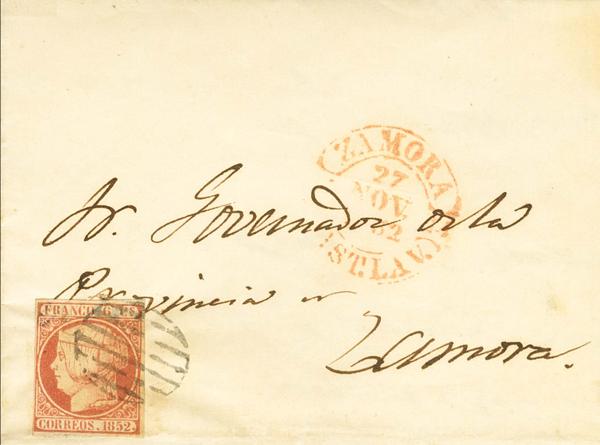 ZAMORA
27
NOV.
52
CAST. LA V.
Sr. Governador de la
Provincia de
Zamora.
FRANCO. 6. CS
CORREOS. 1852.